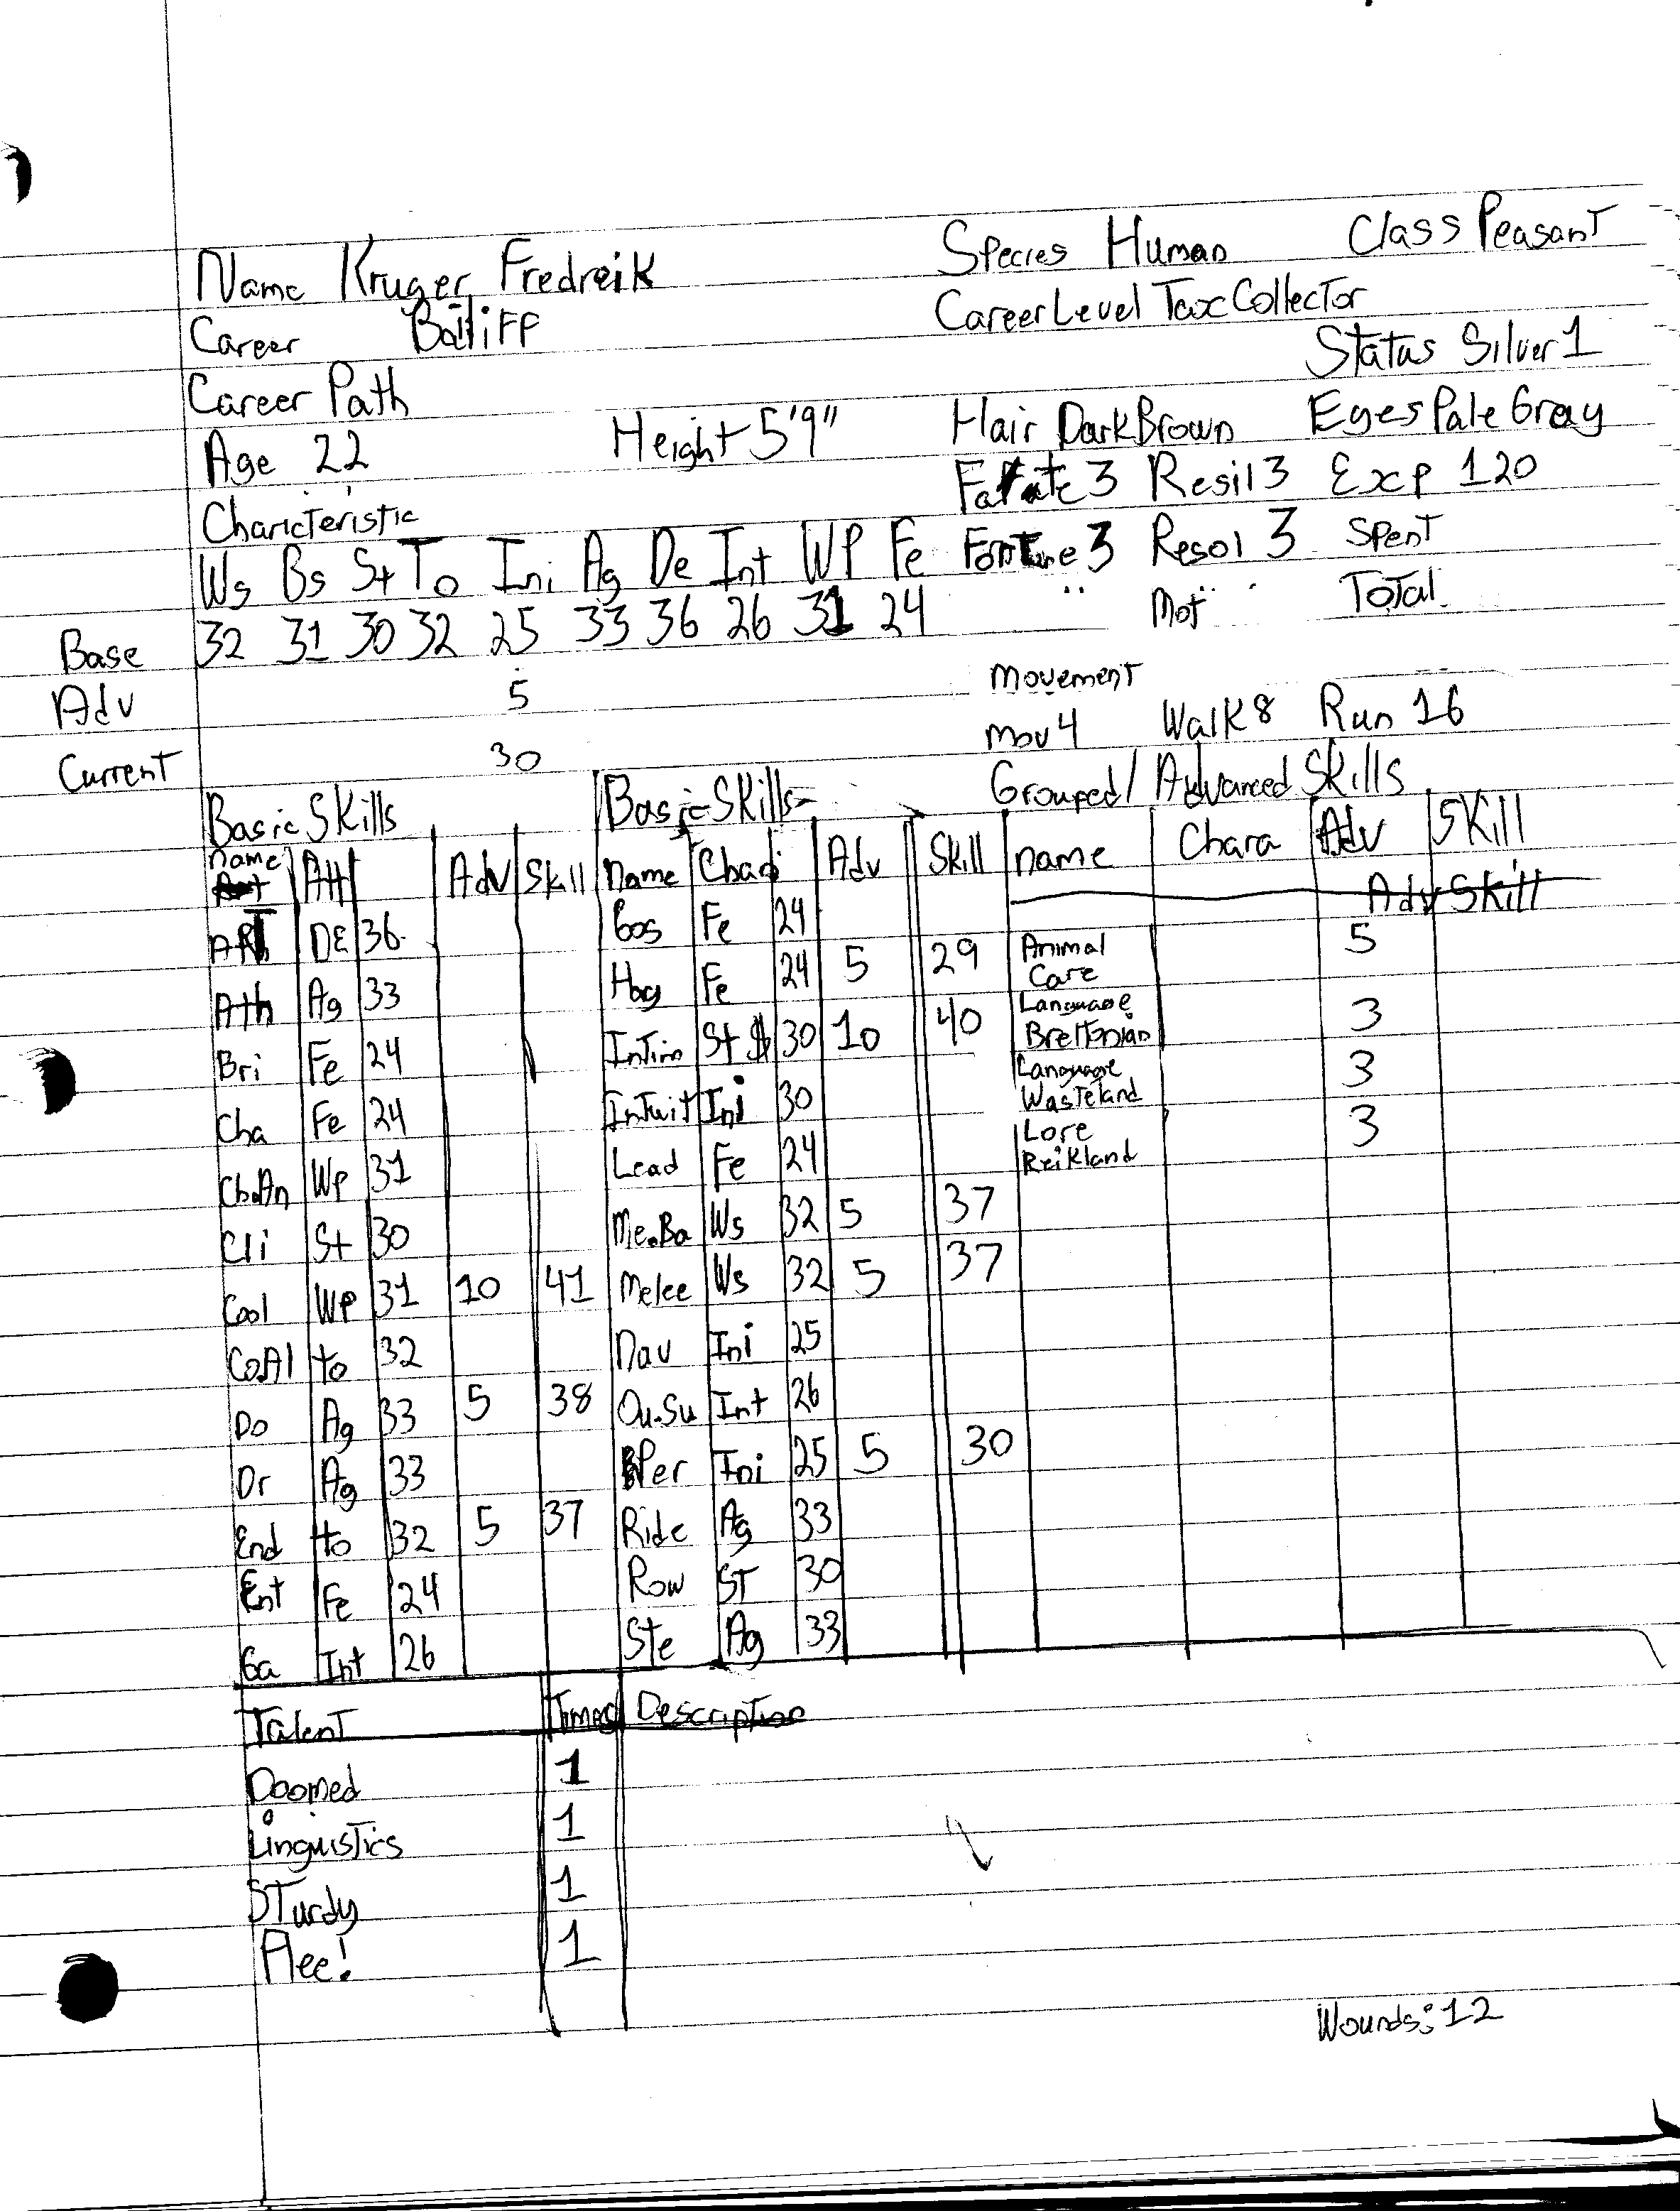 Name Kruger Fredreik Species Human Class Peasant
Career Bailiff Career Level Tax Collector
Career Path Status Silver 1
Age 22 Height 5'9" Hair Dark Brown Eyes Pale Gray
Charicteristic Fate 3 Resil 3 Exp 120
Ws Bs St To Ini Ag De Int WP Fe Fortune 3 Resol 3 Spent
Base 32 31 30 32 25 33 36 26 31 24 Mot Total
Adv 5 Movement
Current 30 Mov 4 Walk 8 Run 16
Basic Skills Basic Skills Grouped/Advanced Skills
Name Att Adv Skill Name Adv Skill name Chara Adv Skill
Adv Skill
Art DE 36 Gos Fe 24
Ath Ag 33 Hag Fe 24 5 29 Animal Care 5
Bri Fe 24 Intim St 30 10 40 Language Brettonian 3
Cha Fe 24 Intuit Ini 30 Language Wasteland 3
Ch.An Wp 31 Lead Fe 24 Lore Reikland 3
Cli St 30 Me.Ba Ws 32 5 37
Cool WP 31 10 41 Melee Ws 32 5 37
CoAl to 32 Nav Ini 25
Do Ag 33 5 38 Ou.Su Int 26
Dr Ag 33 Per Ini 25 5 30
End to 32 5 37 Ride Ag 33
Ent Fe 24 Row ST 30
Ga Int 26 Ste Ag 33
Talent Times Description
Doomed 1
Linguistics 1
Sturdy 1
Flee! 1
Wounds: 12